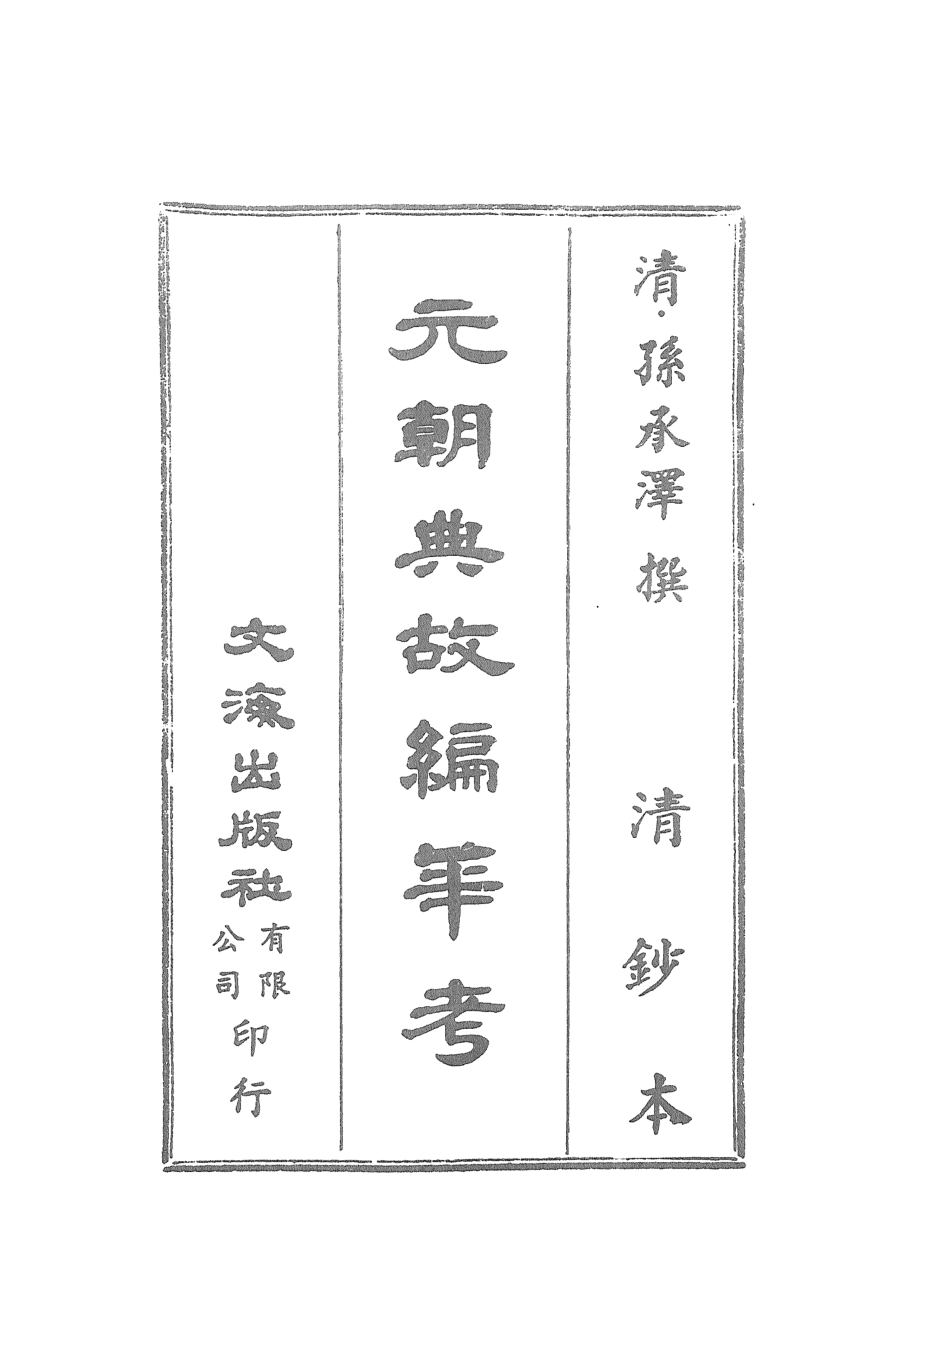 清·孫承澤撰 清鈔本
元朝典故編年考
文海出版社有限公司印行